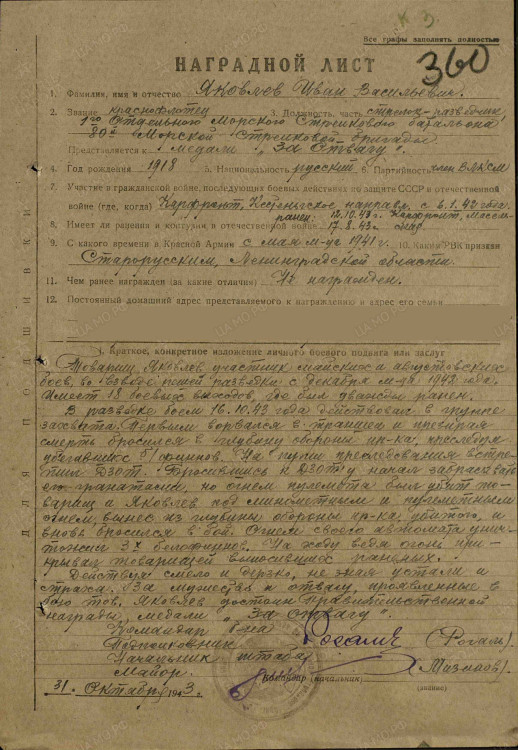 К 3.
Все графы заполнять полностью
360
НАГРАДНОЙ ЛИСТ
1. Фамилия, имя и отчество Яковлев Иван Васильевич.
2. Звание краснофлотец 3. Должность, часть стрелок-разведчик
1го Отдельного Морского Стрелкового батальона
80й Морской Стрелковой бригады.
Представляется к медали „За Отвагу".
4. Год рождения 1918 5. Национальность русский 6. Партийность член ВЛКСМ
7. Участие в гражданской войне, последующих боевых действиях по защите СССР и отечественной
войне (где, когда) Карфронт, Кестеньгское направл. с 6.1.42 года.
8. Имеет ли ранения и контузии в отечественной войне ранен: 12.10.43 г. Карфронт,
17.8.43г.
9. С какого времени в Красной Армии с мая м-ца 1941 г. 10. Каким РВК призван
Старорусским, Ленинградской области.
11. Чем ранее награжден (за какие отличия) Не награжден.
12. Постоянный домашний адрес представляемого к награждению и адрес его семьи
I. Краткое, конкретное изложение личного боевого подвига или заслуг
Товарищ Яковлев участник майских и августовских
боев, во взводе пешей разведки с декабря м-ца 1942 года.
Имеет 18 боевых выходов, где был дважды ранен.
В разведке боем 16.10.43 года действовал в группе
захвата. Первым ворвался в траншеи и презирая
смерть бросился в глубину обороны пр-ка, преследуя
убегавших финнов. На пути преследования встре-
тил ДЗОТ. Бросившись к ДЗОТу начал забрасывать
его гранатами, но огнем пулемета был убит то-
варищ и Яковлев под минометным и пулеметным
огнем, вынес из глубины обороны пр-ка убитого, и
вновь бросился в бой. Огнем своего автомата унич-
тожил 3х белофинов. На ходу ведя огонь при-
крывал товарищей выносивших раненых.
Действуя смело и дерзко, не зная устали и
страха. За мужество и отвагу, проявленные в
бою тов. Яковлев достоин правительственной
награды, медали „За отвагу".
Командир б-на
Подполковник (Рогаль)
Начальник штаба
Майор.
Командир (начальник)
(подпись)
31. Октября 1943.
ДЛЯ ПОДШИВКИ